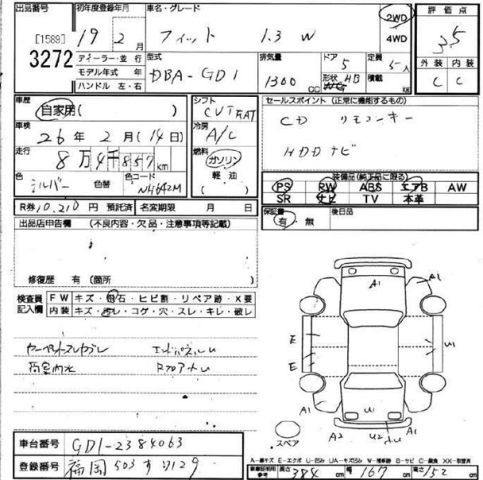 出品番号 初年度登録年月 車名・グレード 評価点
[1589] 3272
19年 2月 フィット 1.3 W
2WD 4WD
3.5
ディーラー・並行
モデル年式 年
ハンドル 左・右
型式 DBA-GD1
排気量 1300 CC
ドア 5
形状 HB
定員 5人
積載
外装 内装
C C
車歴 自家用( )
シフト CVT FAT
セールスポイント(正常に機能するもの)
CD リモコンキー
HDDナビ
車検 26年 2月(14日)
冷房 A/C
走行 8万4千857km
燃料 ガソリン 軽油( )
色 シルバー 色替 色コード NH642M
装備品(純正品に限る)
PS RW ABS エアB AW
SR ナビ TV 本革
R券 10,210円 預託済 名変期限 月 日
保証書 有 無 後日品
出品店申告欄 (不良内容・欠品・注意事項等記載)
修復歴 有(箇所 )
検査員記入欄
FW キズ・飛石・ヒビ割・リペア跡・X要
内装 キズ・汚レ・コゲ・穴・スレ・キレ・破レ
エンドパネルU
A1 A1 E E U1 A1 U1 A1 A2 U2
スペア
車台番号 GD1-2384063
登録番号 福岡 503 す 4129
A=線キズ E=エクボ U=凹ミ
長さ 384 cm 幅 167 cm 高さ 152 cm